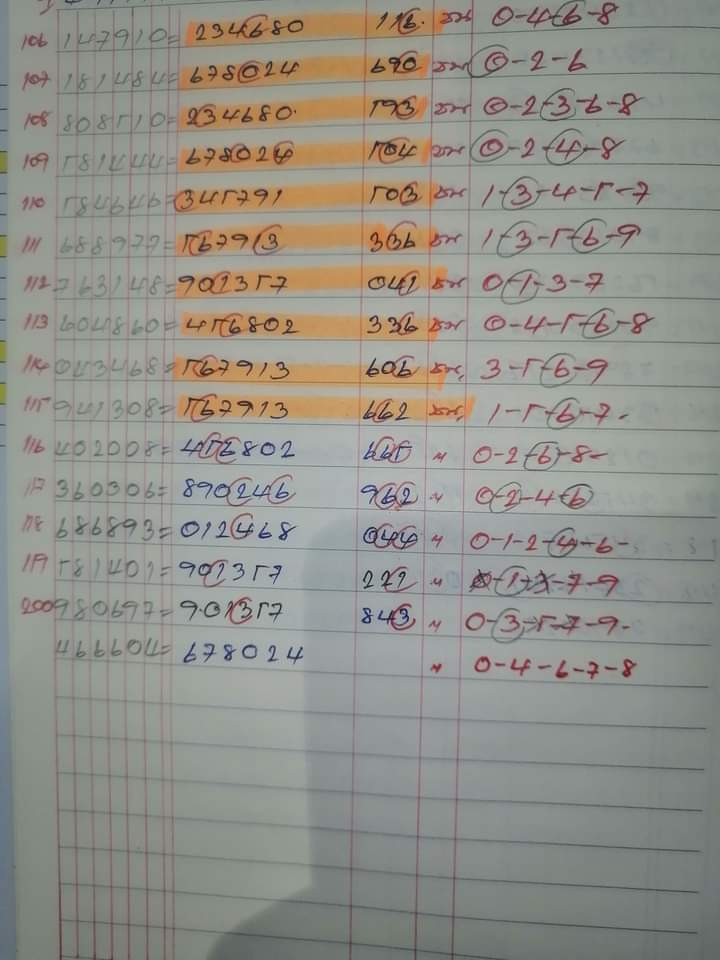 106 147910= 234680 116. 0-4-6-8
107 181484= 678024 690 0-2-6
108 808510= 234680. 593 0-2-3-6-8
109 581444= 678024 504 0-2-4-8
110 584646= 345791 503 1-3-4-5-7
111 688977= 567913 336 1-3-5-6-9
112 763148= 901357 041 0-1-3-7
113 604860= 456802 336 0-4-5-6-8
114 043468= 567913 606 3-5-6-9
115 941308= 567913 662 1-5-6-7-
116 402008= 456802 665 " 0-2-6-8-
117 360306= 890246 962 " 0-2-4-6
118 686893= 012468 044 " 0-1-2-4-6-
119 581401= 901357 221 " 0-1-3-7-9
200 980697= 901357 843 " 0-3-5-7-9-
466604= 678024 " 0-4-6-7-8